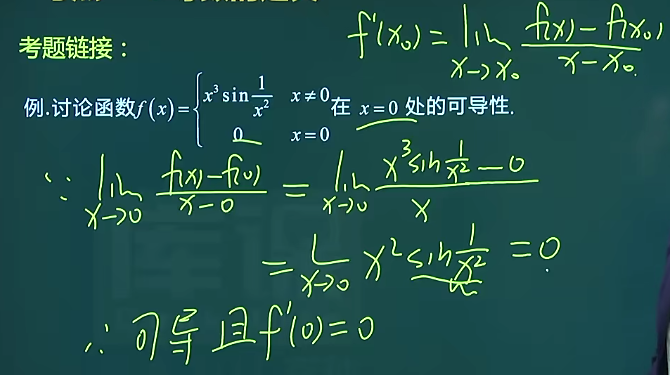 f'(x₀) = lim x→x₀ (f(x) - f(x₀))/(x - x₀)
考题链接：
例.讨论函数f(x)={x³ sin 1/x² x≠0, 0 x=0 在 x=0 处的可导性.
∵ lim x→0 (f(x)-f(0))/(x-0) = lim x→0 (x³ sin 1/x² - 0)/x
= lim x→0 x² sin 1/x² = 0
∴ 可导且f'(0)=0